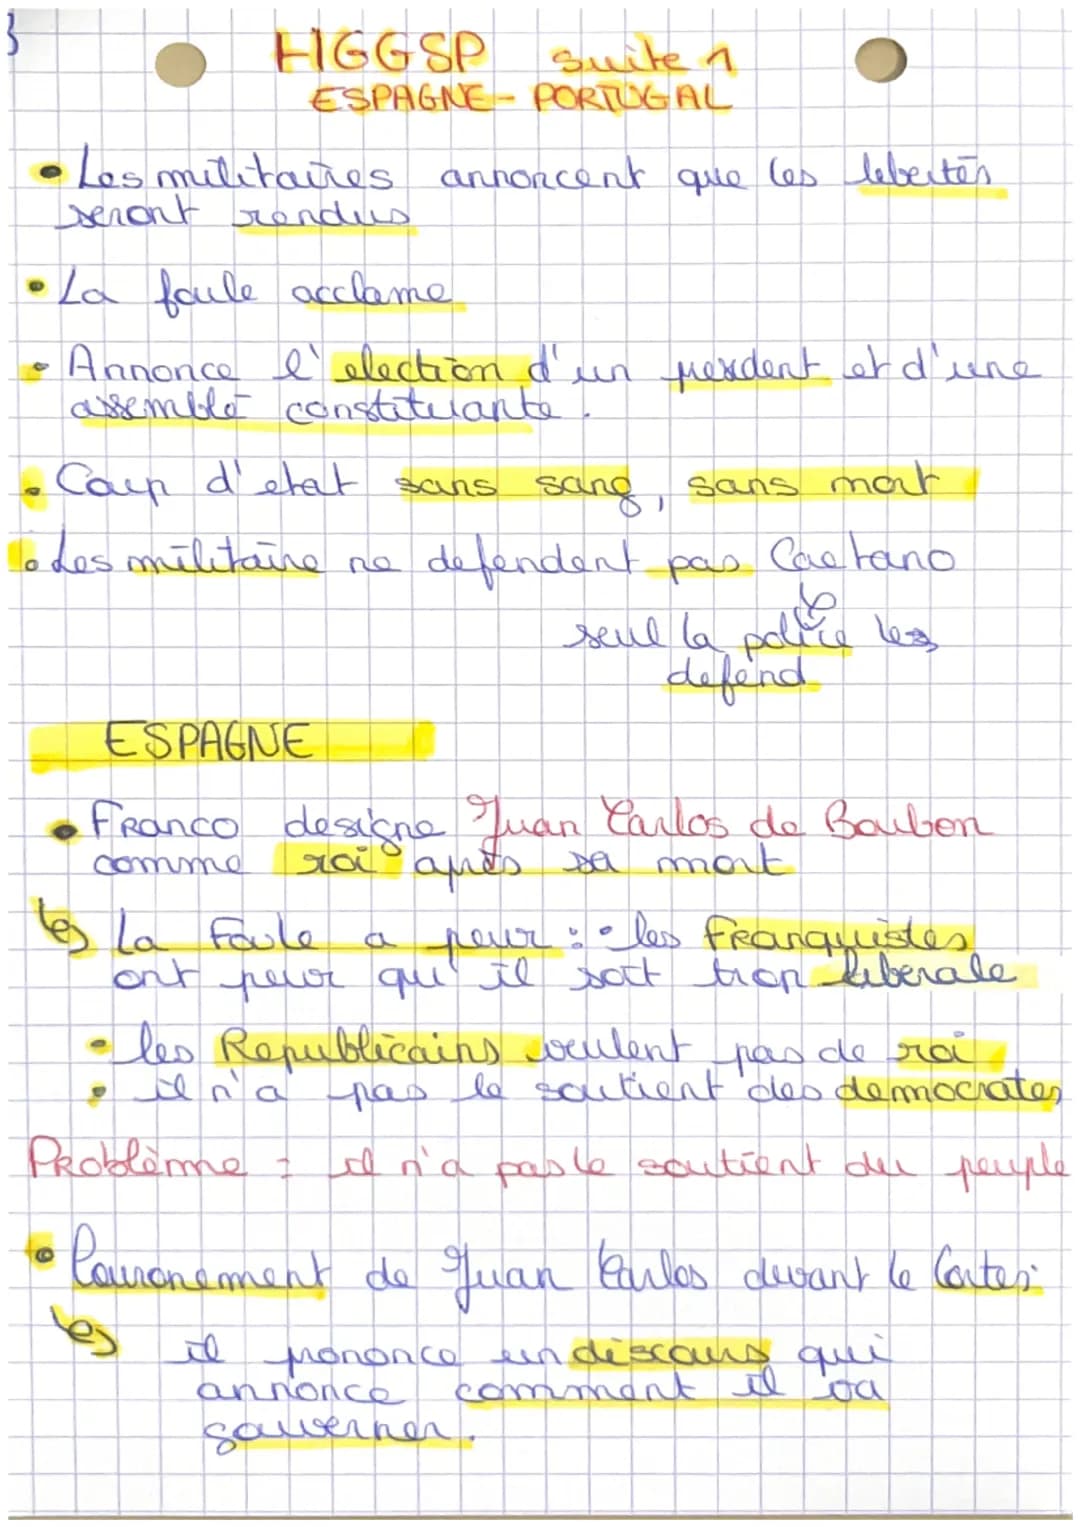 3
HGGSP suite 1
ESPAGNE - PORTUGAL
• Les militaires annoncent que les libertés
seront rendus
• La foule acclame
• Annonce l'election d'un presdent et d'une
assemblé constituante.
• Coup d'etat sans sang, sans mort
• Les militaire ne defendent pas Caetano
seul la police les
defend
ESPAGNE
• FRANCO designe Juan Carlos de Boubon
comme roi après sa mort
La Foule a peur : • les franquistes
ont peur qu'il soit trop liberale
• les Republicains veulent pas de roi
• il n'a pas le soutient des democrates
Problème = il n'a pas le soutient du peuple
• Couronement de Juan Carlos devant le Cortes.
il prononce un discours qui
annonce comment il va
gouverner.